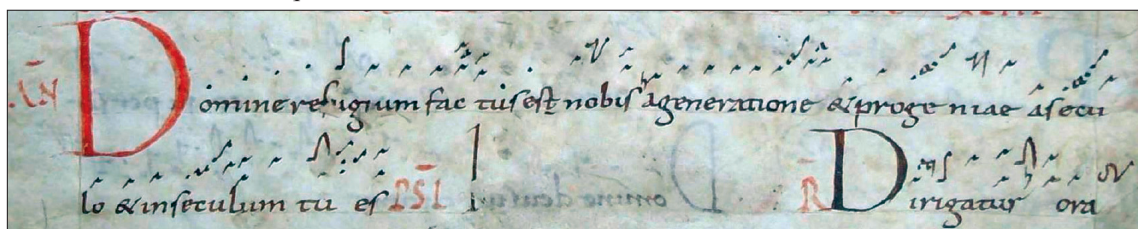 AN Domine refugium factus est nobis a generatione & proge niae a secu
lo & in seculum tu es PSL I R Dirigatur ora